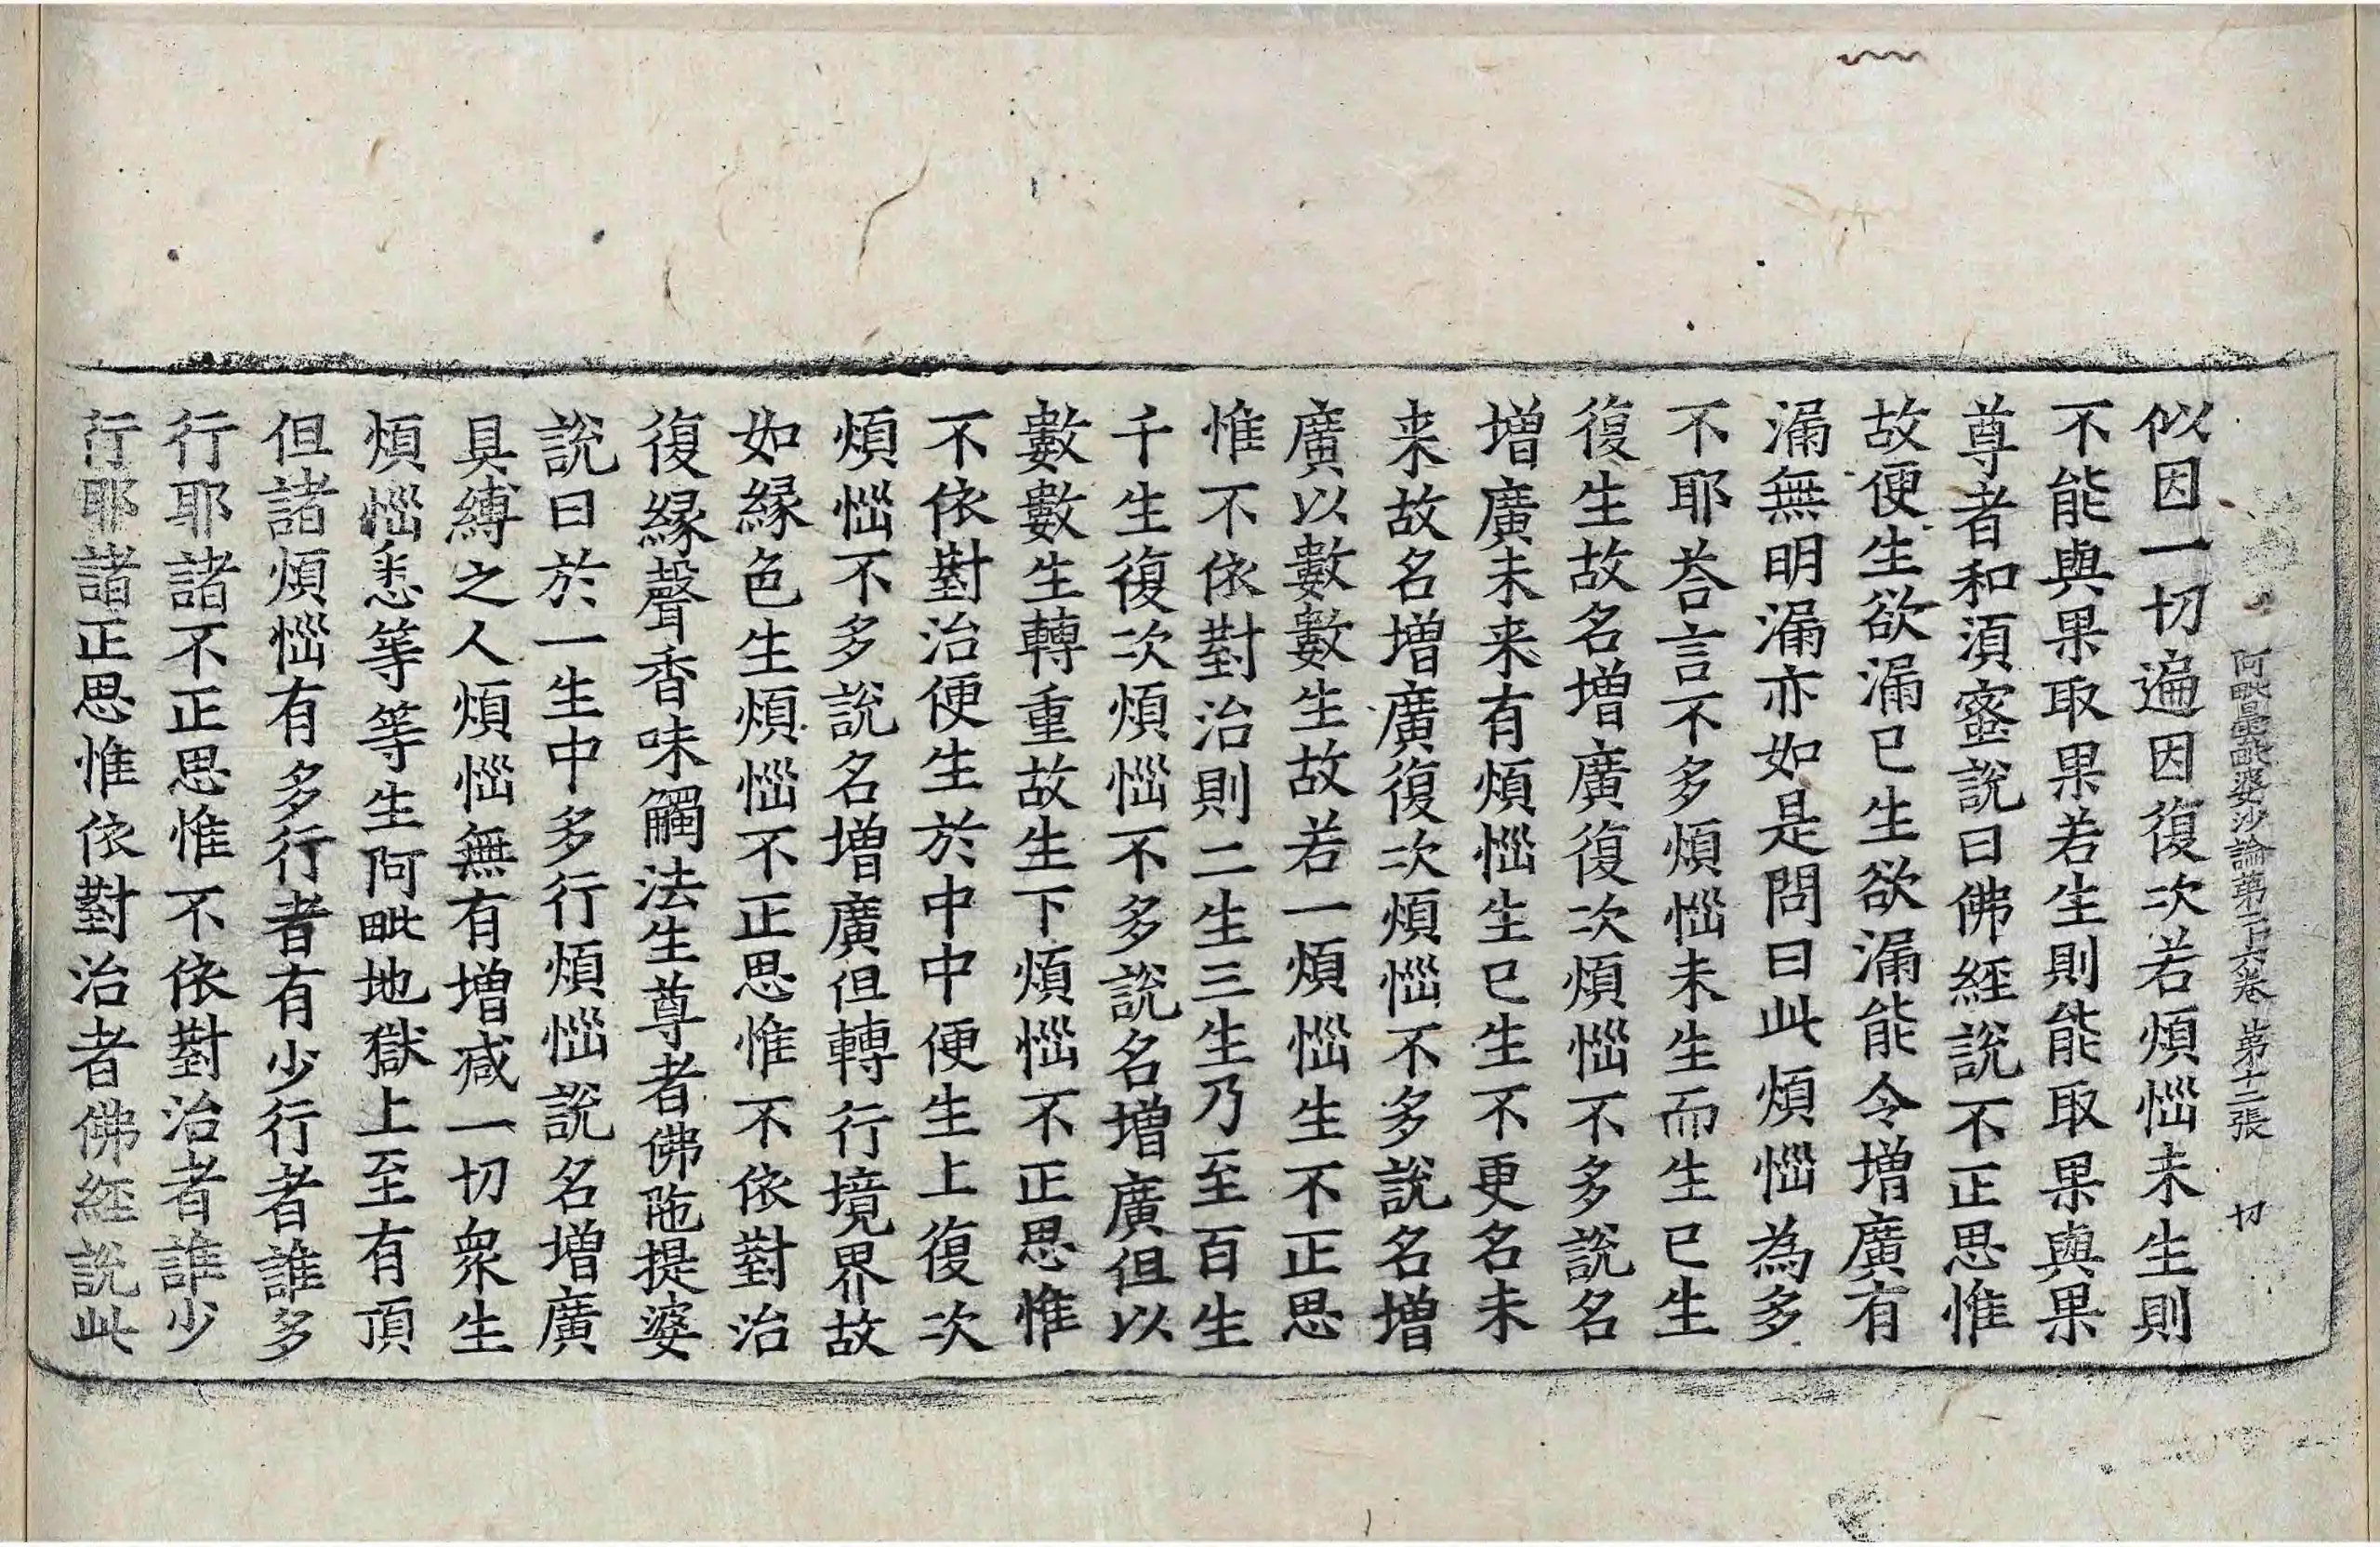 阿毗曇毗婆沙論第二十六卷 第十二張 切
似因一切遍因復次若煩惱未生則
不能與果取果若生則能取果與果
尊者和須蜜說曰佛經說不正思惟
故便生欲漏已生欲漏能令增廣有
漏無明漏亦如是問曰此煩惱為多
不耶荅言不多煩惱未生而生已生
復生故名增廣復次煩惱不多說名
增廣未来有煩惱生已生不更名未
来故名增廣復次煩惱不多說名增
廣以數數生故若一煩惱生不正思
惟不依對治則二生三生乃至百生
千生復次煩惱不多說名增廣但以
數數生轉重故生下煩惱不正思惟
不依對治便生於中中便生上復次
煩惱不多說名增廣但轉行境界故
如緣色生煩惱不正思惟不依對治
復緣聲香味觸法生尊者佛陁提婆
說曰於一生中多行煩惱說名增廣
具縛之人煩惱無有增减一切衆生
煩惱悉等等生阿毗地獄上至有頂
但諸煩惱有多行者有少行者誰多
行耶諸不正思惟不依對治者誰少
行耶諸正思惟依對治者佛經說此